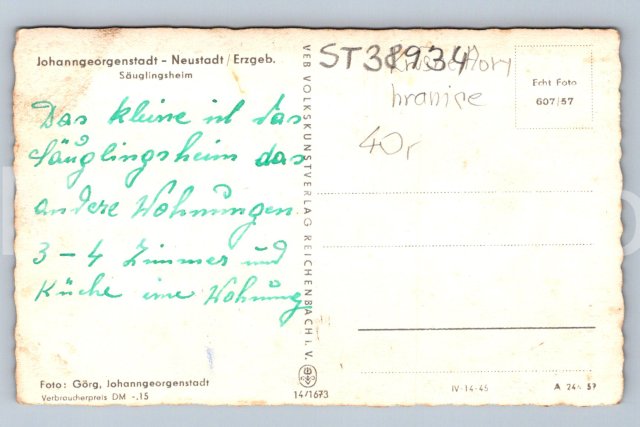 Johanngeorgenstadt - Neustadt/Erzgeb.
Säuglingsheim
Das kleine ist das
Säuglingsheim das
andere Wohnungen
3 - 4 Zimmer und
Küche eine Wohnung
Foto: Görg, Johanngeorgenstadt
Verbraucherpreis DM -.15
VEB VOLKSKUNSTVERLAG REICHENBACH i. V.
14/1673
ST38934
Krušné Hory
hranice
40,
Echt Foto
607/57
IV-14-45
A 244 57